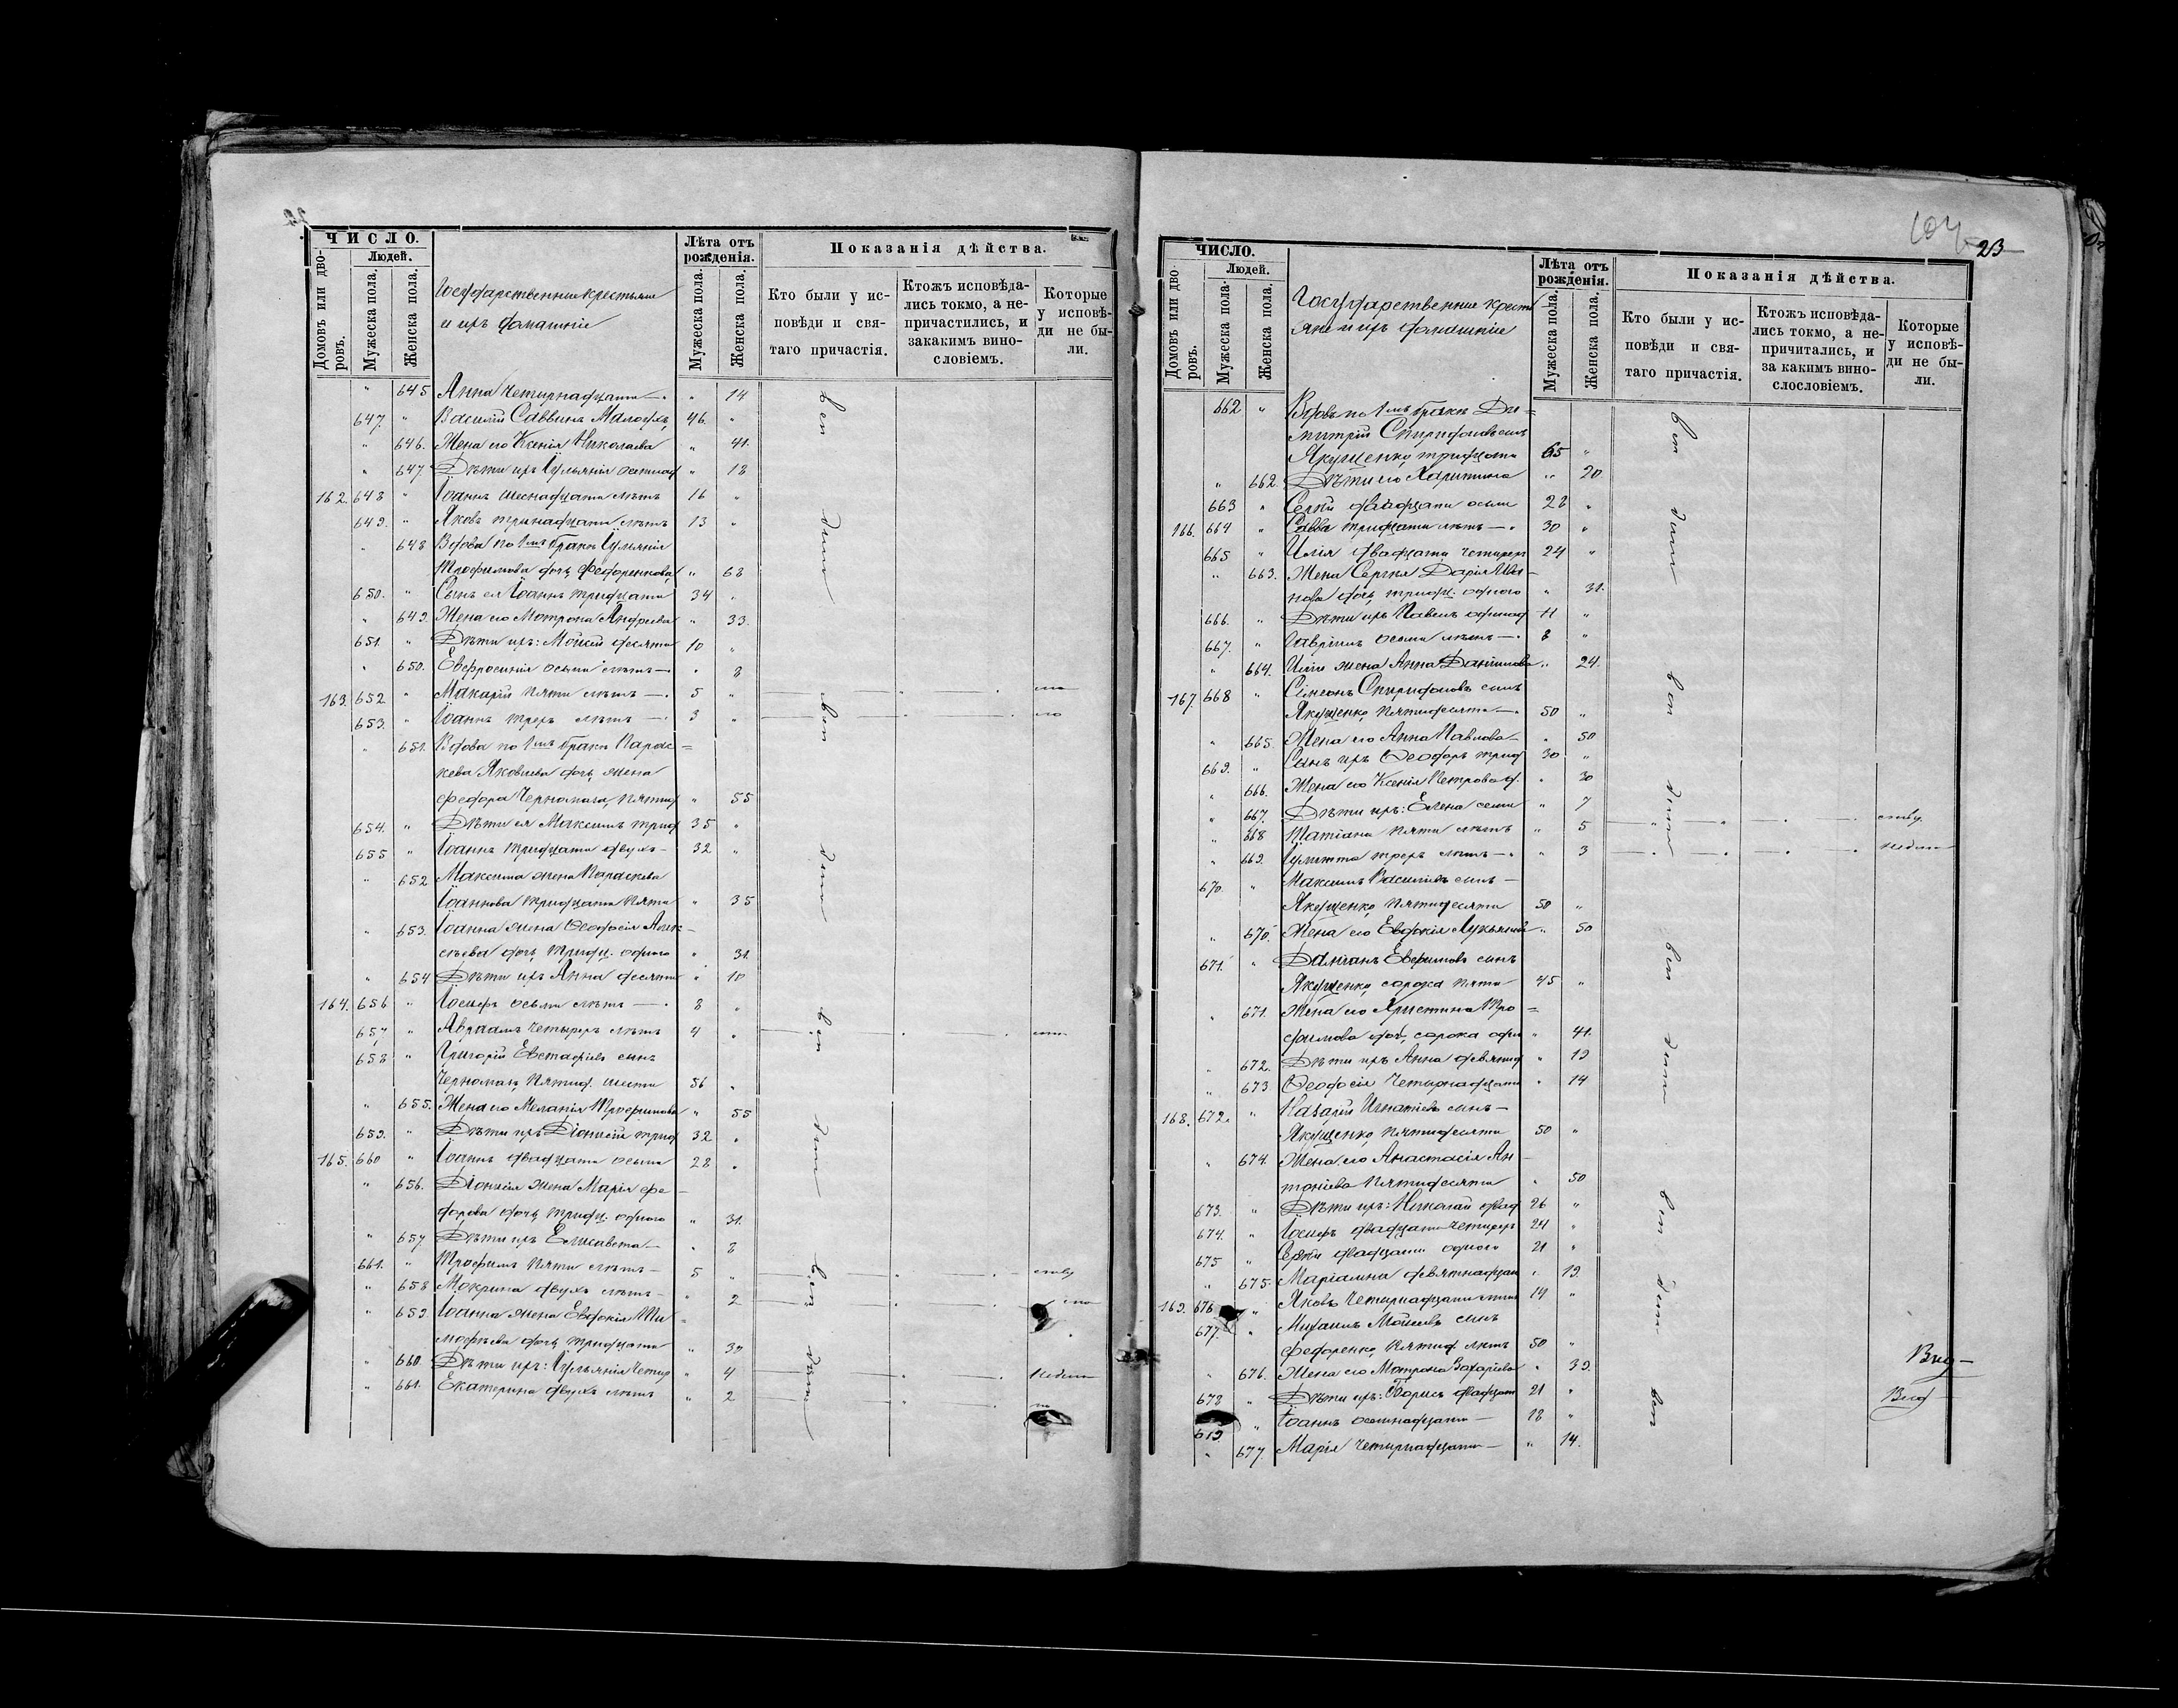 ЧИСЛО.
Людей.
Домовъ или дворовъ.
Мужеска пола.
Женска пола.
Государственные крестьяне
и ихъ домашніе
Лѣта отъ рожденія.
Мужеска пола.
Женска пола.
Показанія дѣйства.
Кто были у исповѣди и святаго причастія.
Ктожъ исповѣдались токмо, а непричастились, и закакимъ винословіемъ.
Которые у исповѣди не были.
" 645 Анна четырнадцати — " 14
647. " Василій Саввинъ 46. "
" 646. Жена его Ксенія Николаева " 41.
" 647 Дѣти ихъ Іульянія осмнад " 18
162. 648 " Іоаннъ шеснадцати лѣтъ 16 "
649. " Яковъ тринадцати лѣтъ 13 "
" 648 Вдова по 1мъ бракѣ Іульянія
Трофимова дочь Федоренкова " 68
650. " Сынъ ея Іоаннъ тридцати 34 "
" 649. Жена его Матрона Андреева " 33.
651. " Дѣти ихъ: Мойсей десяти 10 "
" 650. Евфросинія осьми лѣтъ — " 8
163. 652. " Макарій пяти лѣтъ — 5 "
653. " Іоаннъ трехъ лѣтъ — 3 "
" 651. Вдова по 1мъ бракѣ Парас=
кева Яковлева дочь жена
Федора Черномаза пятид " 55
654. " Дѣти ея Максимъ трид 35 "
655 " Іоаннъ тридцати двухъ — 32 "
" 652 Максима жена Параскева
Іоаннова тридцати пяти " 35
" 653. Іоанна жена Ѳеодосія Алек-
сѣева дочь тридц. одного " 31.
" 654 Дѣти ихъ Анна десяти " 10
164. 656 " Іосифъ осьми лѣтъ — 8 "
657 " Авраамъ четырехъ лѣтъ 4 "
658 " Григорій Евстафіевъ сынъ
Черномазъ пятид. шести 56 "
" 655. Жена его Меланія Трофимова " 55
659. " Дѣти ихъ Діонисій трид 32 "
165. 660 " Іоаннъ двадцати осьми 28 "
" 656. Діонисія жена Марія Фе-
дорова дочь тридц. одного " 31.
" 657 Дѣти ихъ Елисавета — " 8
661. " Трофимъ пяти лѣтъ — 5 "
" 658 Мокрина двухъ лѣтъ — " 2
" 659 Іоанна жена Евдокія Ти=
мофѣева дочь тридцати " 30
" 660 Дѣти ихъ: Іульянія четыр " 4
" 661. Екатерина двухъ лѣтъ " 2
23
ЧИСЛО.
Людей.
Домовъ или дворовъ.
Мужеска пола.
Женска пола.
Государственные кресть
яне и ихъ домашніе
Лѣта отъ рожденія.
Мужеска пола.
Женска пола.
Показанія дѣйства.
Кто были у исповѣди и святаго причастія.
Ктожъ исповѣдались токмо, а непричитались, и за какимъ винослословіемъ.
Которые у исповѣди не были.
662 " Вдовъ по 1мъ бракѣ Ди=
митрій Спиридоновъ сынъ
Якущенко, тридцати 65 "
" 662. Дѣти его Харитина " 20
663 " Сергій двадцати осьми 28 "
166. 664 " Савва тридцати лѣтъ — 30 "
665 " Илія двадцати четырех 24 "
" 663. Жена Сергія Дарія Ива-
нова дочь тридц. одного " 31.
666. " Дѣти ихъ Павелъ одинад 11 "
667. " Гавріилъ осьми лѣтъ — 8 "
" 664. Иліи жена Анна Даніилова " 24.
167. 668 " Симеонъ Спиридоновъ сынъ
Якущенко, пятидесяти — 50 "
" 665. Жена его Анна Павлова — " 50
669. " Сынъ ихъ Ѳеодоръ трид 30 "
" 666. Жена его Ксенія Петрова д. " 30
" 667. Дѣти ихъ: Елена семи " 7
" 668 Татіана пяти лѣтъ " 5
" 669. Іулитта трехъ лѣтъ — " 3
670. " Максимъ Василіевъ сынъ —
Якущенко, пятидесяти 50 "
" 670. Жена его Евдокія Лукьянов " 50
671. " Даміанъ Евфимовъ сынъ
Якущенко, сорока пяти 45 "
" 671. Жена его Христина Тро=
фимова доч, сорока одн " 41.
" 672. Дѣти ихъ Анна девятнад " 19
" 673 Ѳеодосія четырнадцати " 14
168. 672. " Назарій Игнатіевъ сынъ —
Якущенко, пятидесяти 50 "
" 674. Жена его Анастасія Ан-
тоніева пятидесяти " 50
673. " Дѣти ихъ: Николай двад 26 "
674. " Іосифъ двадцати четырехъ 24 "
675 " двадцати одного 21 "
" 675. Маріамна девятнадцат " 19.
169. 676 " Яковъ четырнадцати лѣтъ 14 "
677. " Михаилъ Мойсеевъ сынъ
Федоренко, пятид лѣтъ 50 "
" 676. Жена его Матрона Захаріева " 39.
678 " Дѣти ихъ: Борисъ двадцат 21 "
619 " Іоаннъ осемнадцати — 18 "
" 677. Марія четырнадцати — " 14.